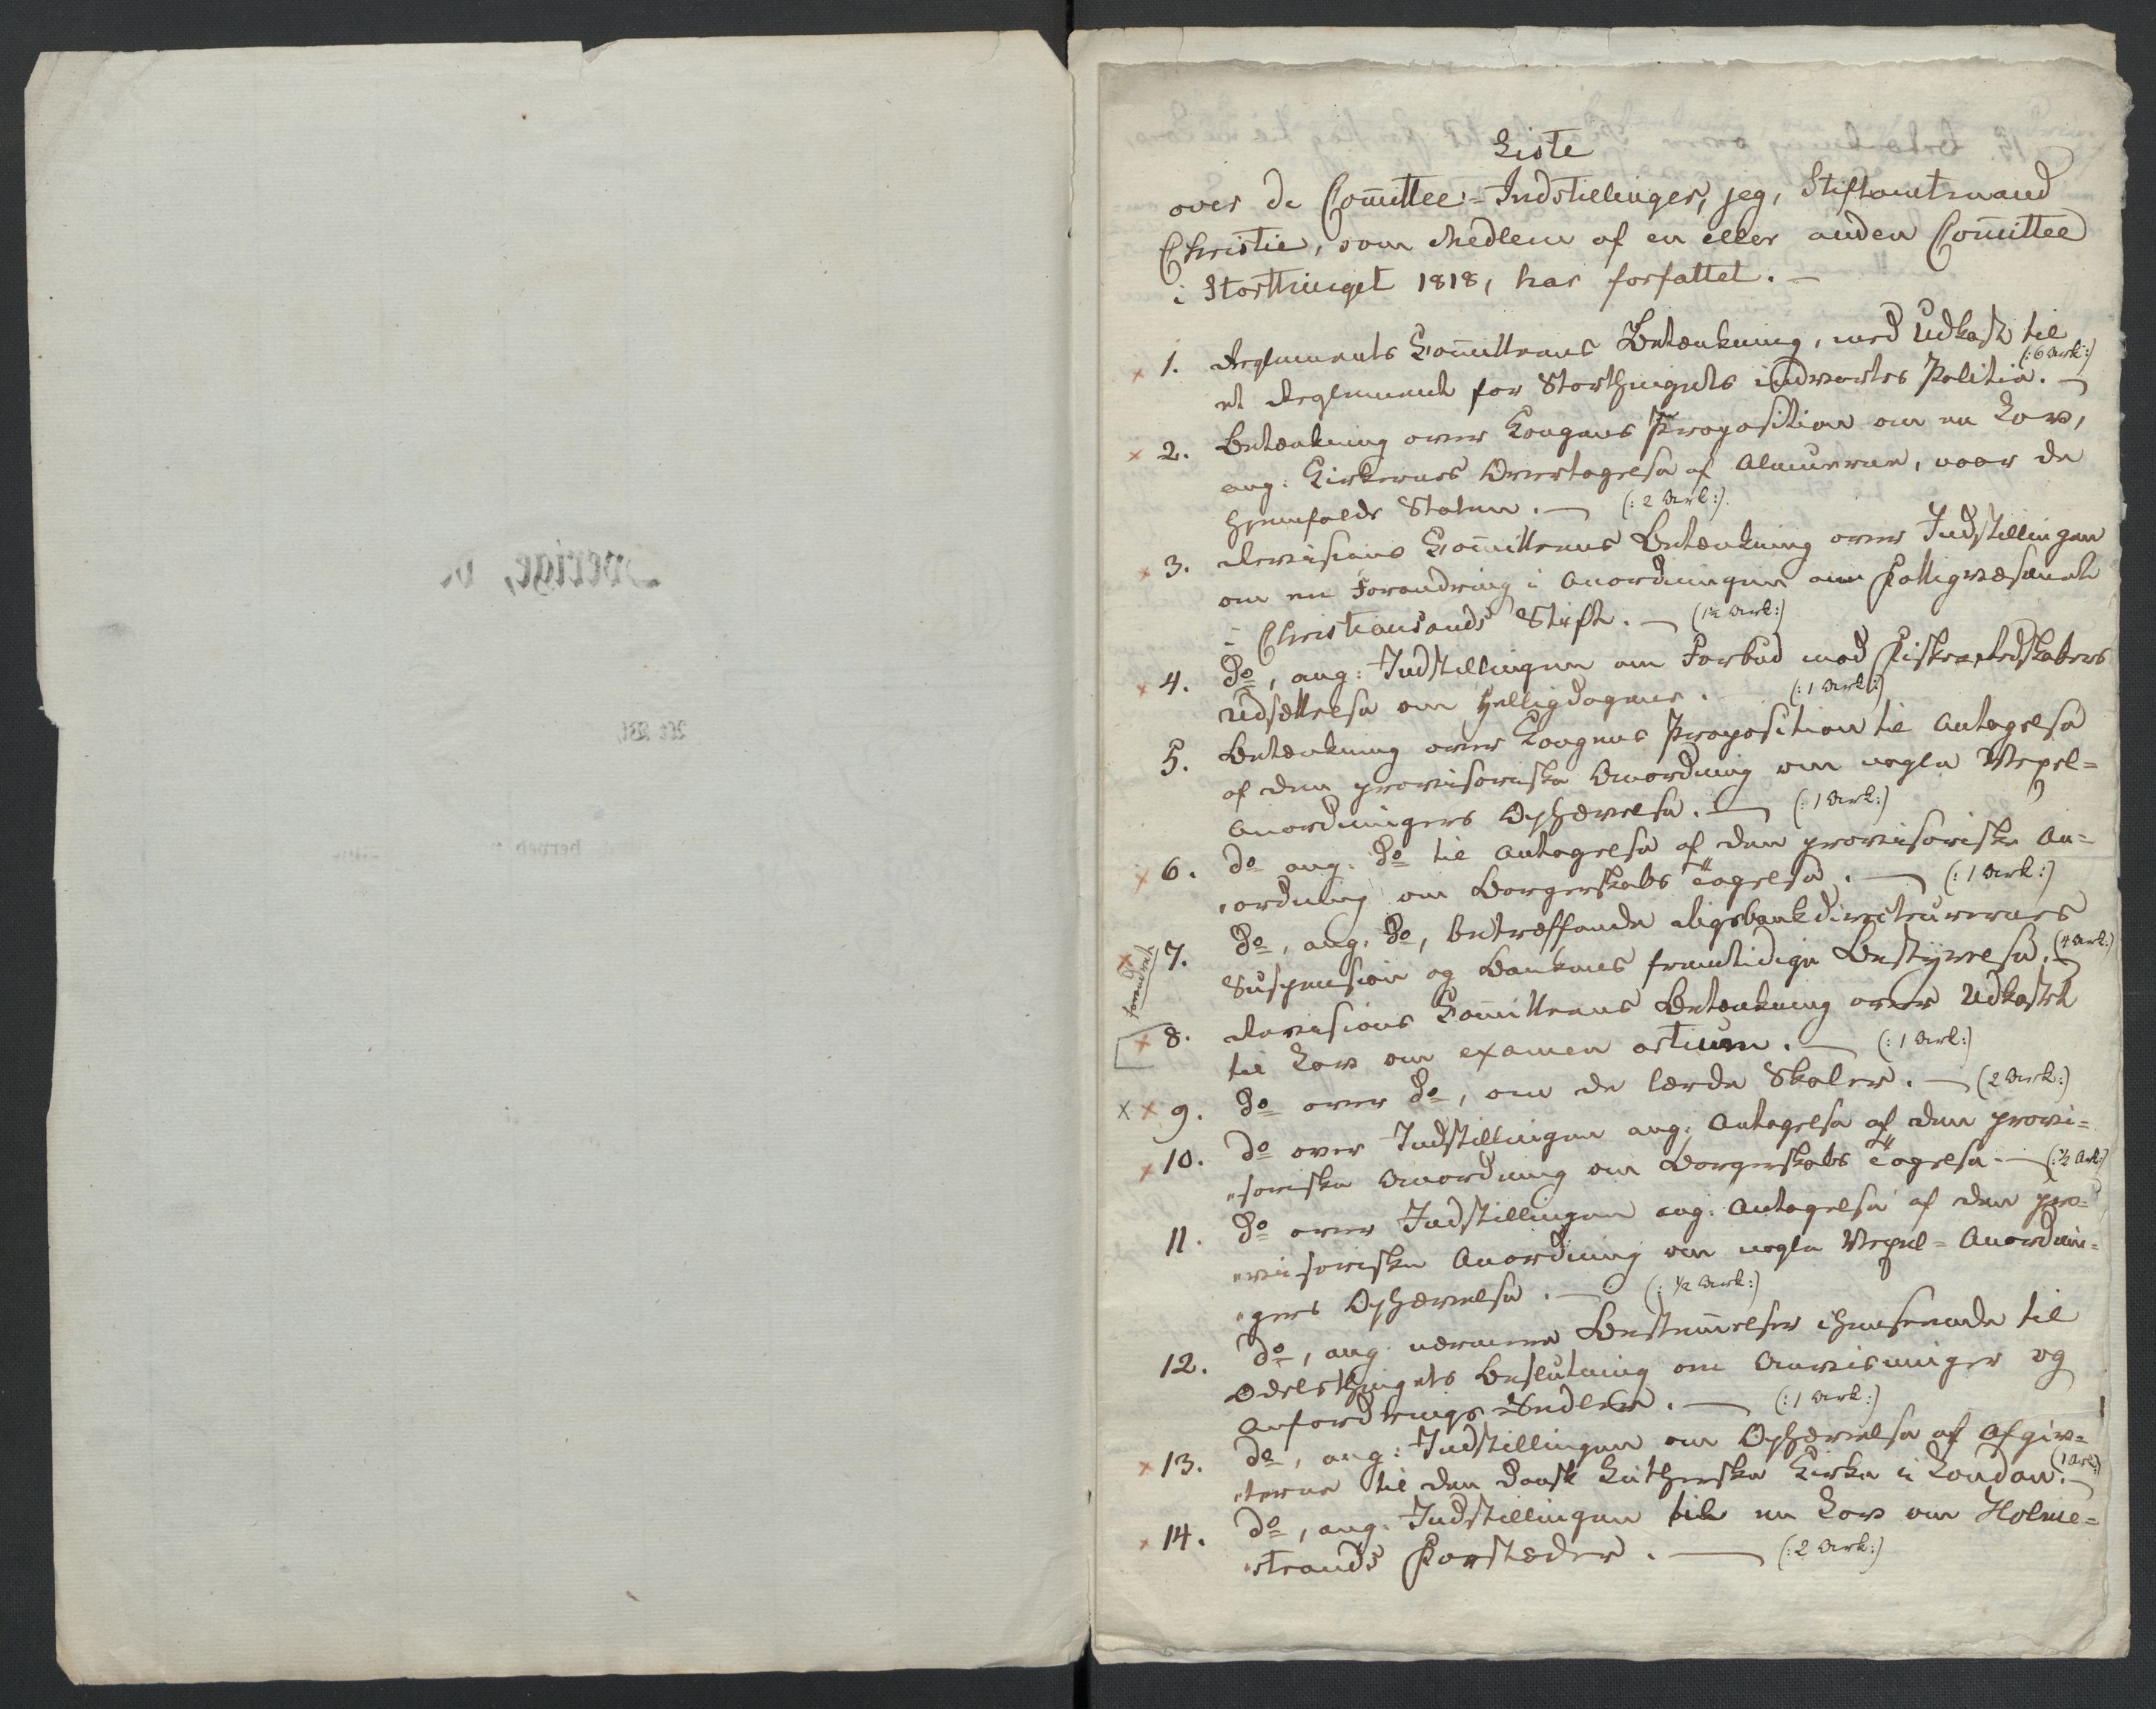 Liste
over de Com̅ittee-Indstillinger, jeg, Stiftamtmand
Christie, som Medlem af en eller anden Com̅ittee
i Storthinget 1818, har forfattet. —
1. Reglements Com̅itteens Betænkning, med Udkast til
et Reglement for Storthingets indvortes Politie. — (: 6 Ark :)
2. Betænkning over Kongens Proposition om en Lov,
ang: Kirkernes Overtagelse af Almuerne, naar de
hjemfalde Staten. — (: 2 Ark :).
3. Revisions Com̅itteens Betænkning over Indstillingen
om en Forandring i Anordningen om Fattigvæsenet
i Christiansands Stift. — (1½ Ark :)
4. Do, ang: Indstillingen om Forbud mod Fiskeredskabers
Udsættelse om Helligdagene. (: 1 Ark :)
5. Betænkning over Kongens Proposition til Antagelse
af den provisoriske Anordning om nogle Vexel=
Anordningers Ophævelse. — (: 1 Ark :)
6. do ang. Do til Antagelse af den provisoriske An=
ordning om Borgerskabs Tagelse. — (: 1 Ark :)
forandret
7. Do, ang. Do, betræffende Rigsbankdirecteurernes
Suspension og Bankens fremtidige Bestyrelse. — (4 Ark :)
8. Revisions Com̅itteens Betænkning over Udkastet
til Lov om examen artium. — (: 1 Ark :)
x x 9. Do over Do, om de lærde Skoler. — (2 Ark :)
10. Do over Indstillingen ang: Antagelse af den provi=
soriske Anordning om Borgerskabs Tagelse — (: ½ Ark :)
11. Do over Indstillingen ang: Antagelse af den pro=
visoriske Anordning om nogle Vexel=Anordnin=
gers Ophævelse. — (: ½ Ark :)
12. Do, ang. nærmere Bestem̅elser ihenseende til
Odelsthingets Beslutning om Anviisninger og
Anfordrings=Sedler. — (: 1 Ark :)
13. Do, ang: Indstillingen om Ophævelse af Afgiv=
terne til den dansk Lutherske Kirke i London. — (1 Ark :)
14. Do, ang. Indstillingen til en Lov om Holme=
strands Forstæder. — (: 2 Ark :)